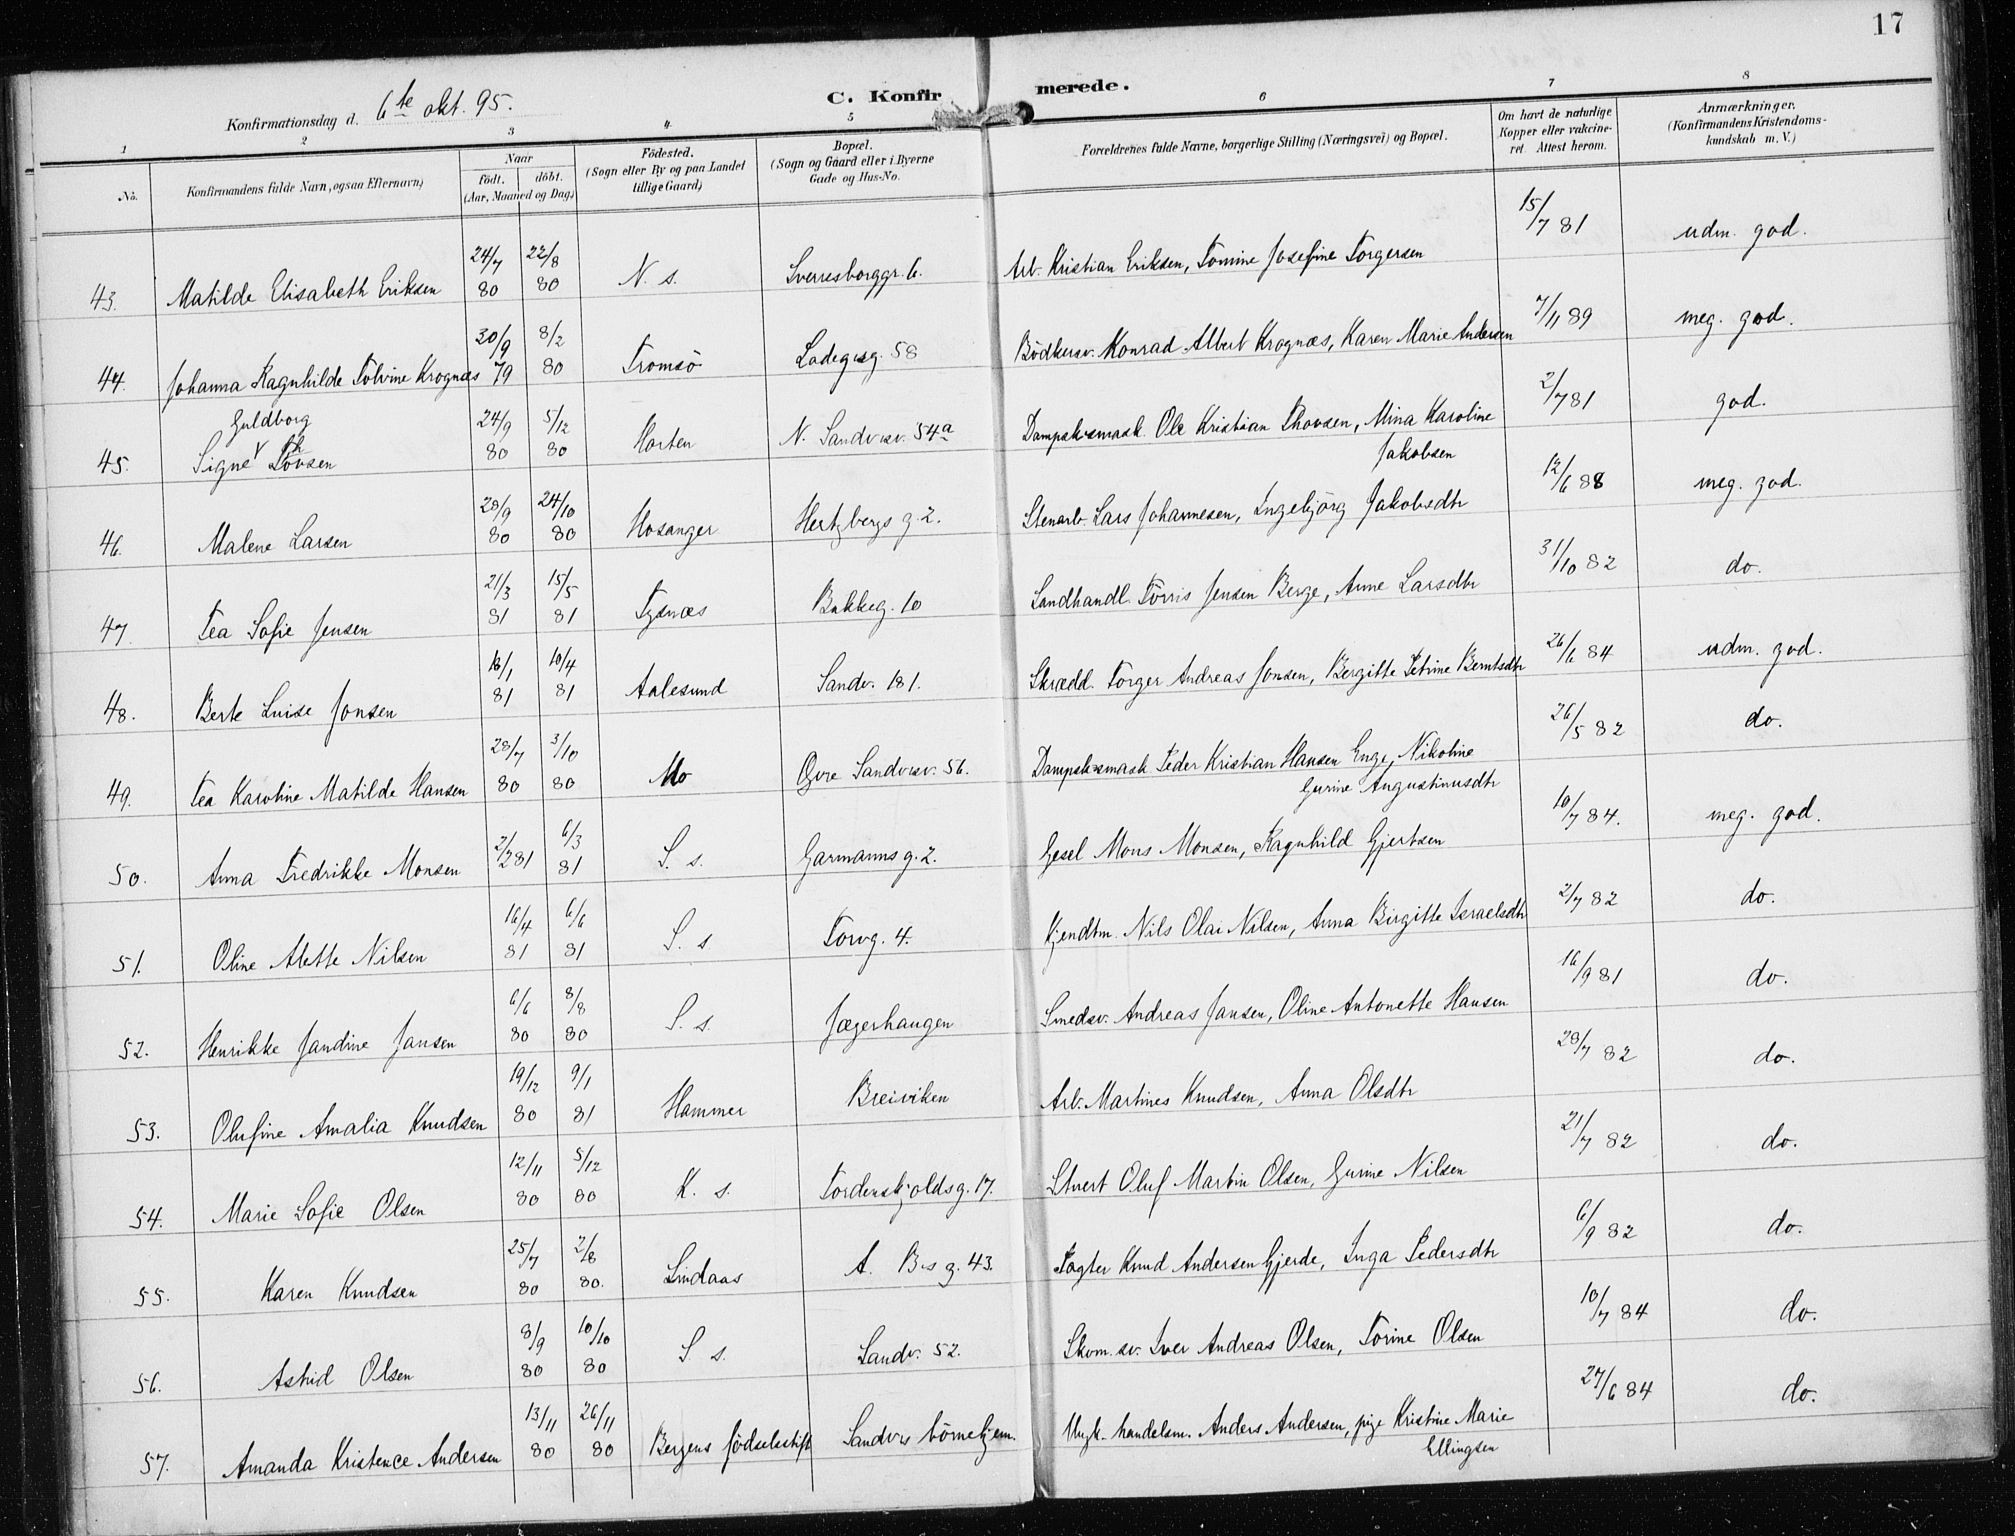 17
Konfirmationsdag d. 6te okt. 95.
C. Konfirmerede.
1 2 3 4 5 6 7 8
No.
Konfirmandens fulde Navn, ogsaa Efternavn,
Naar
födt. döbt.
(Aar, Maaned og Dag)
Födested.
(Sogn eller By og paa Landet
tillige Gaard)
Bopæl.
(Sogn og Gaard eller i Byerne
Gade og Hus-No.
Forældrenes fulde Navne, borgerlige Stilling (Næringsvei) og Bopæl.
Om havt de naturlige
Kopper eller vakcine-
ret Attest herom.
Anmærkninger.
(Konfirmandens Kristendoms-
kundskab m. V.)
43. Matilde Elisabeth Eriksen 24/7 80 22/8 80 N. s. Sverresborggr. 6. Arb. Kristian Eriksen, Tomine Josefine Torgersen 15/7 81 udm. god.
44. Johanna Ragnhilde Tolvine Krognæs 30/9 79 8/2 80 Tromsö Ladegsg. 58 Bödkersv. Konrad Albert Krognæs, Karen Marie Andersen 7/11 89 meg. god.
Guldborg
45. Signe Thovsen 24/9 80 5/12 80 Horten N. Sandvsv. 54a Dampsk.smask. Ole Kristian Thovsen, Mina Karoline 2/7 81 god.
Jakobsen
46. Malene Larsen 28/9 80 24/10 80 Hosanger Hertzbergs g. 2. Stenarb. Lars Johannesen, Ingebjörg Jakobsdtr 12/6 88 meg. god.
47. Tea Sofie Jensen 21/3 81 15/5 81 Tysnæs Bakkeg. 10 Landhandl. Torris Jensen Berge, Anne Larsdtr 31/10 82 do.
48. Berte Luise Jonsen 18/1 81 10/4 81 Aalesund Sandv. 181. Skrædd. Torger Andreas Jonsen, Bergitte Petrine Berntsdtr 26/6 84 udm. god.
49. Tea Karoline Matilde Hansen 28/7 80 3/10 80 Mo Övre Sandvsv. 56. Dampsk.smask Peder Kristian Hansen Enge, Nikoline 26/5 82 do.
Gurine Augustinusdtr
50. Anna Fredrikke Monsen 2/2 81 6/3 81 S. s. Garmanns g. 2. Gesel Mons Monsen, Ragnhild Gjertsen 10/7 84. meg. god.
51. Oline Alette Nilsen 16/4 81 6/6 81 S. s Torvg. 4. Kjendtm. Nils Olai Nilsen, Anna Birgitte Israelsdtr 2/7 82 do.
52. Henrikke Jandine Jansen 6/6 80 8/8 80 S. s. Jægerhaugen Smedsv. Andreas Jansen, Oline Antonette Hansen 16/9 81 do.
53. Olufine Amalia Knudsen 19/12 80 9/1 81 Hammer Breiviken Arb. Martines Knudsen, Anna Olsdtr 28/7 82 do.
54. Marie Sofie Olsen 12/11 80 5/12 80 K. s. Tordenskjoldsg. 17. Stuert Oluf Martin Olsen, Gurine Nilsen 21/7 82 do.
55. Karen Knudsen 25/7 80 2/8 80. Lindaas A. Bs g. 43. Fogter Knud Andersen Gjerde, Inga Pedersdtr 6/9 82 do.
56. Astrid Olsen 8/9 80 10/10 80 S s. Sandv. 52. Skom. sv. Iver Andreas Olsen, Torine Olsen 10/7 84 do.
57. Amanda Kristence Andersen 13/11 80 26/11 80 Bergens födselsstift Sandvs börnehjem. Ungk. handelsm. Anders Andersen, pige Kristine Marie 27/6 84 do.
Ellingsen